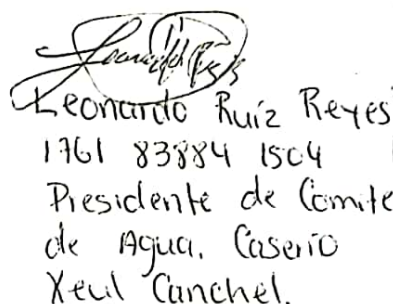 Leonardo Ruíz Reyes
1761 83884 1504
Presidente de Comite
de Agua. Caserío
Xeul Canchel.